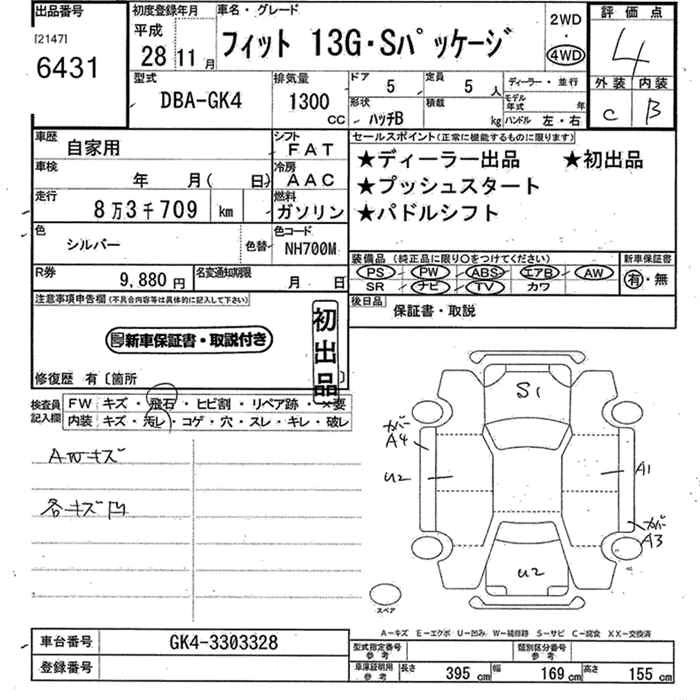 出品番号 初度登録年月 車名・グレード 2WD 評価点
[2147] 平成
6431 28 11月 フィット 13G・Sパッケージ 4WD 4
型式 排気量 ドア 5 定員 5人 ディーラー・並行 外装 内装
DBA-GK4 1300 CC 形状 ハッチB 積載 kg モデル年式 年 C B
ハンドル 左・右
車歴 自家用 シフト FAT セールスポイント(正常に機能するものに限ります)
車検 年 月( 日) 冷房 AAC ★ディーラー出品 ★初出品
★プッシュスタート
走行 8万3千709 km 燃料 ガソリン ★パドルシフト
色 シルバー 色替 色コード NH700M
装備品(純正品に限り〇をつけてください) 新車保証書
R券 9,880円 名変通知期限 月 日 PS PW ABS エアB AW 有・無
SR ナビ TV カワ
注意事項申告欄(不具合内容等は具体的に記入して下さい) 後日品 保証書・取説
新車保証書・取説付き 初出品
修復歴 有〔箇所 〕
検査員記入欄 FW キズ・飛石・ヒビ割・リペア跡・×要
内装 キズ・汚レ・コゲ・穴・スレ・キレ・破レ
S1
カバー
A4
AWキズ
U2 A1
各キズ凹
カバー
A3
U2
スペア
A-キズ E-エクボ U-凹み W-補修跡 S-サビ C-腐食 XX-交換済
車台番号 GK4-3303328 型式指定番号 参考 類別区分番号 参考
登録番号 車庫証明用 参考 長さ 395 cm 幅 169 cm 高さ 155 cm